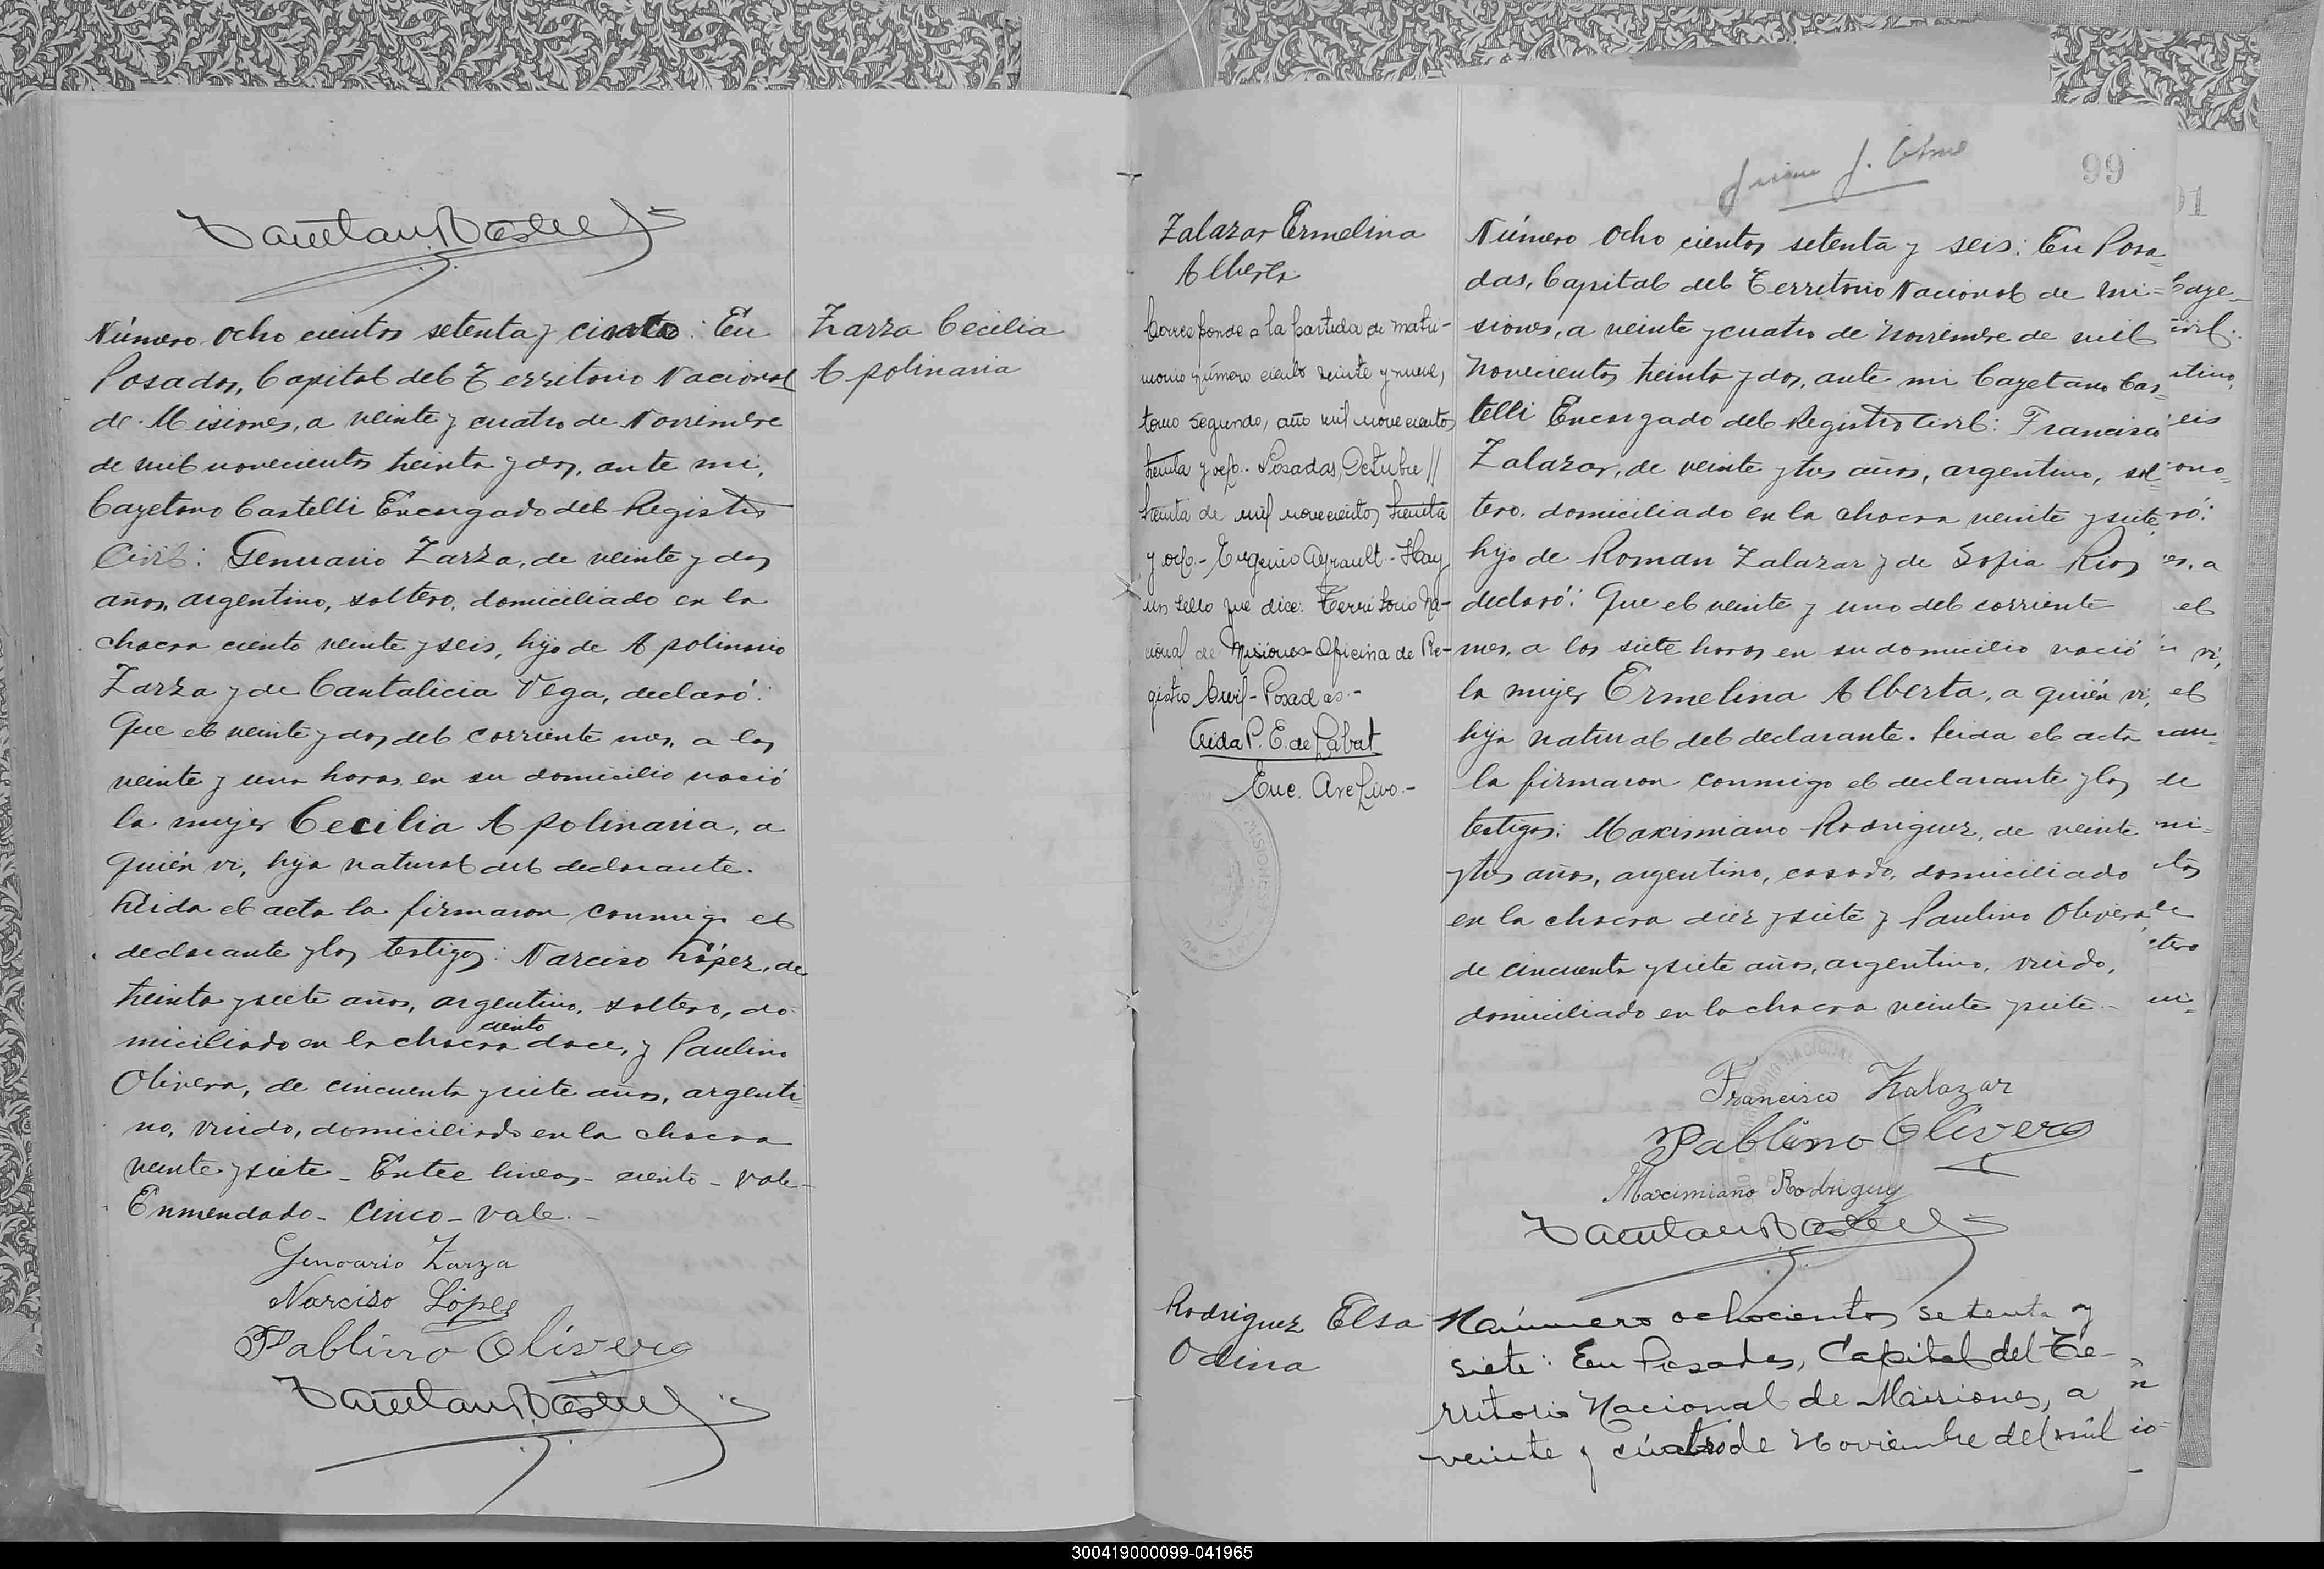 Número ocho cientos setenta y cinco: En
Posadas, Capital del Territorio Nacional
de Misiones, a veinte y cuatro de Noviembre
de mil novecientos treinta y dos, ante mi,
Cayetano Castelli Encargado del Registro
Civil: Genuario Zarza, de veinte y dos
años, argentino, soltero, domiciliado en la
chacra ciento veinte y seis, hijo de Apolinario
Zarza y de Cantalicia Vega, declaró:
Que el veinte y dos del corriente mes, a las
veinte y una horas en su domicilio nació
la mujer Cecilia Apolinaria, a
quién vi, hija natural del declarante.
Leida el acta la firmaron conmigo el
declarante y los testigos: Narciso López, de
treinta y siete años, argentino, soltero, do-
ciento
miciliado en la chacra doce, y Paulino
Olivera, de cincuenta y siete años, argenti-
no, viudo, domiciliado en la chacra
veinte y siete - Entre lineas - ciento - vale -
Enmendado - cinco - vale. -
Genoario Zarza
Narciso López
Pablino Olivera
Zarza Cecilia
Apolinaria
99
Zalazar Ermelina
Alberta
Corresponde a la partida de matri-
monio número ciento veinte y nueve,
tomo segundo, año mil novecientos
treinta y ocho.- Posadas, Octubre //
treinta de mil novecientos treinta
y ocho.- Eugenio Ayrault.- Hay
un sello que dice: Territorio Na-
cional de Misiones-Oficina de Re-
gistro Civil-Posadas.-
Aida P. E. de Labat
Enc. Archivo.-
Número ocho cientos setenta y seis: En Posa-
das, Capital del Territorio Nacional de Mi-
siones, a veinte y cuatro de Noviembre de mil
novecientos treinta y dos, ante mi Cayetano Cas-
telli Encargado del Registro Civil: Francisco
Zalazar, de veinte y tres años, argentino, sol-
tero, domiciliado en la chacra veinte y siete,
hijo de Roman Zalazar y de Sofia Rios
declaró: Que el veinte y uno del corriente
mes, a las siete horas en su domicilio nació
la mujer Ermelina Alberta, a quién vi,
hija natural del declarante. Leida el acta
la firmaron conmigo el declarante y los
testigos: Maximiano Rodriguez, de veinte
y tres años, argentino, casado, domiciliado
en la chacra diez y siete y Paulino Olivera,
de cincuenta y siete años, argentino, viudo,
domiciliado en la chacra veinte y siete -
Francisco Zalazar
Pablino Olivera
Maximiano Rodriguez
Rodriguez Elsa
Odina
Número ochocientos setenta y
siete: En Posadas, Capital del Te-
rritorio Nacional de Misiones, a
veinte y cuatro de Noviembre del mil
300419000099-041965